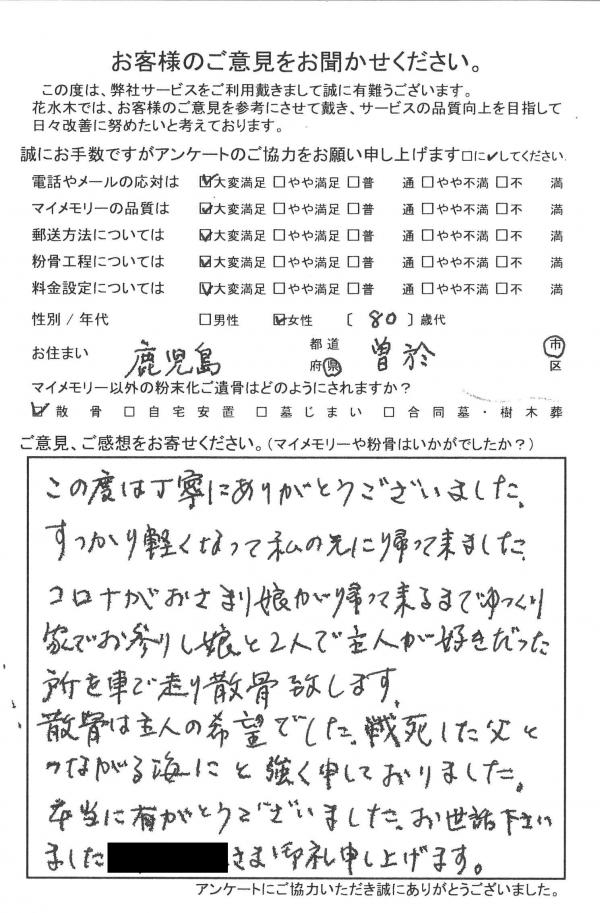 お客様のご意見をお聞かせください。
この度は、弊社サービスをご利用戴きまして誠に有難うございます。
花水木では、お客様のご意見を参考にさせて戴き、サービスの品質向上を目指して
日々改善に努めたいと考えております。
誠にお手数ですがアンケートのご協力をお願い申し上げます□に✓してください
電話やメールの応対は ☑大変満足 □やや満足 □普 通 □やや不満 □不 満
マイメモリーの品質は ☑大変満足 □やや満足 □普 通 □やや不満 □不 満
郵送方法については ☑大変満足 □やや満足 □普 通 □やや不満 □不 満
粉骨工程については ☑大変満足 □やや満足 □普 通 □やや不満 □不 満
料金設定については ☑大変満足 □やや満足 □普 通 □やや不満 □不 満
性別 / 年代 □男性 ☑女性 〔 80 〕歳代
お住まい 鹿児島 都道府県 曽於 市区
マイメモリー以外の粉末化ご遺骨はどのようにされますか？
☑散骨 □自宅安置 □墓じまい □合同墓・樹木葬
ご意見、ご感想をお寄せください。（マイメモリーや粉骨はいかがでしたか？）
この度は丁寧にありがとうございました。
すっかり軽くなって私の元に帰って来ました。
コロナがおさまり娘が帰って来るまでゆっくり
家でお参りし娘と2人で主人が好きだった
所を車で走り散骨致します。
散骨は主人の希望でした。戦死した父と
つながる海にと強く申しておりました。
本当に有がとうございました。お世話下さい
ました きさま御礼申し上げます。
アンケートにご協力いただき誠にありがとうございました。